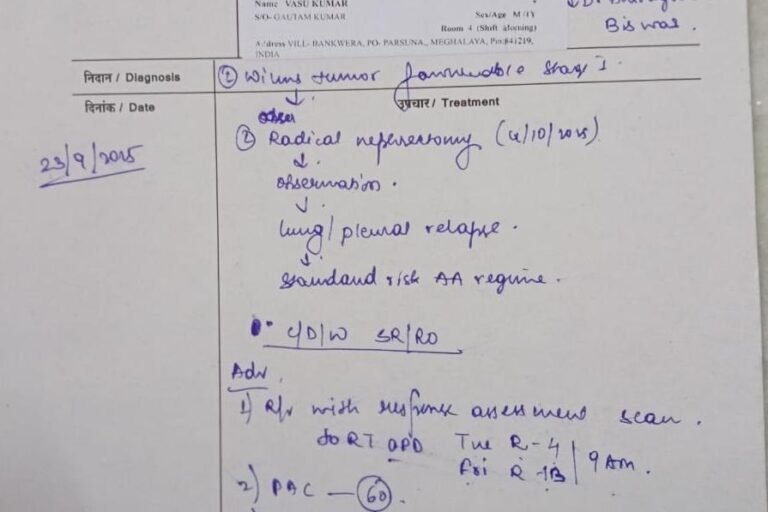 Name VASU KUMAR
S/O- GAUTAM KUMAR
Sex/Age M /1Y
Room 4 (Shift Morning)
Address VILL- BANKWERA, PO- PARSUNA,, MEGHALAYA, Pin:841219,
INDIA
Biswas.
निदान / Diagnosis
① Wilms tumor favourable Stage I.
दिनांक / Date
उपचार / Treatment
23/9/2025
② Radical nephrectomy (4/10/2025)
observation.
lung/pleural relapse.
standard risk AA regime.
C/D/W SR/RO
Adv.
1) R/v with response assessment scan.
to RT OPD Tue R-4
Fri R-1B 9 Am.
2) PAC — 60.